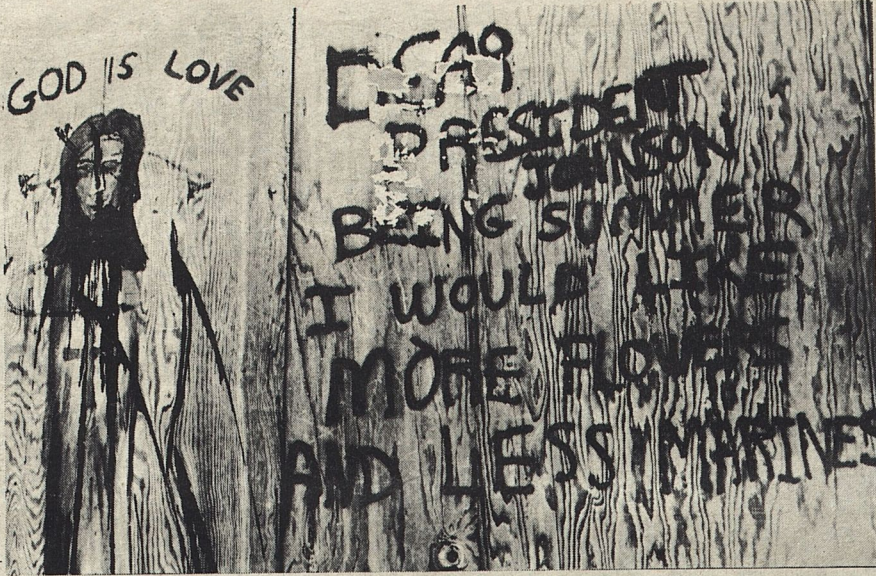 GOD IS LOVE
DEAR
PRESIDENT
JOHNSON
BEING SUMMER
I WOULD LIKE
MORE FLOWERS
AND LESS MARINES